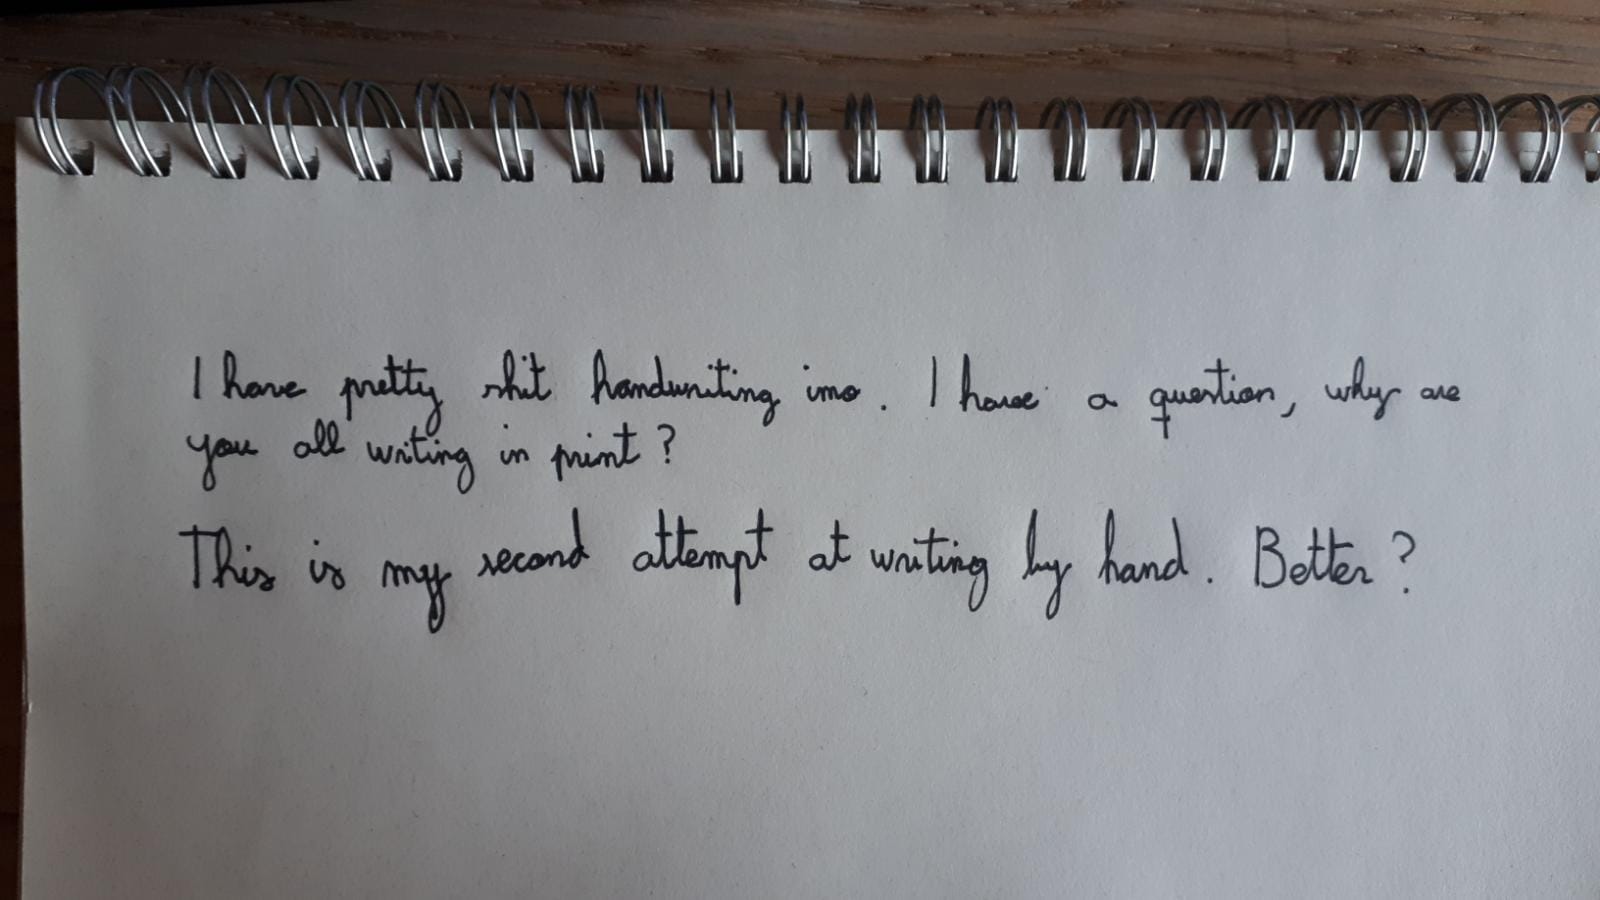 I have pretty shit handwriting imo. I have a question, why are
you all writing in print?
This is my second attempt at writing by hand. Better?